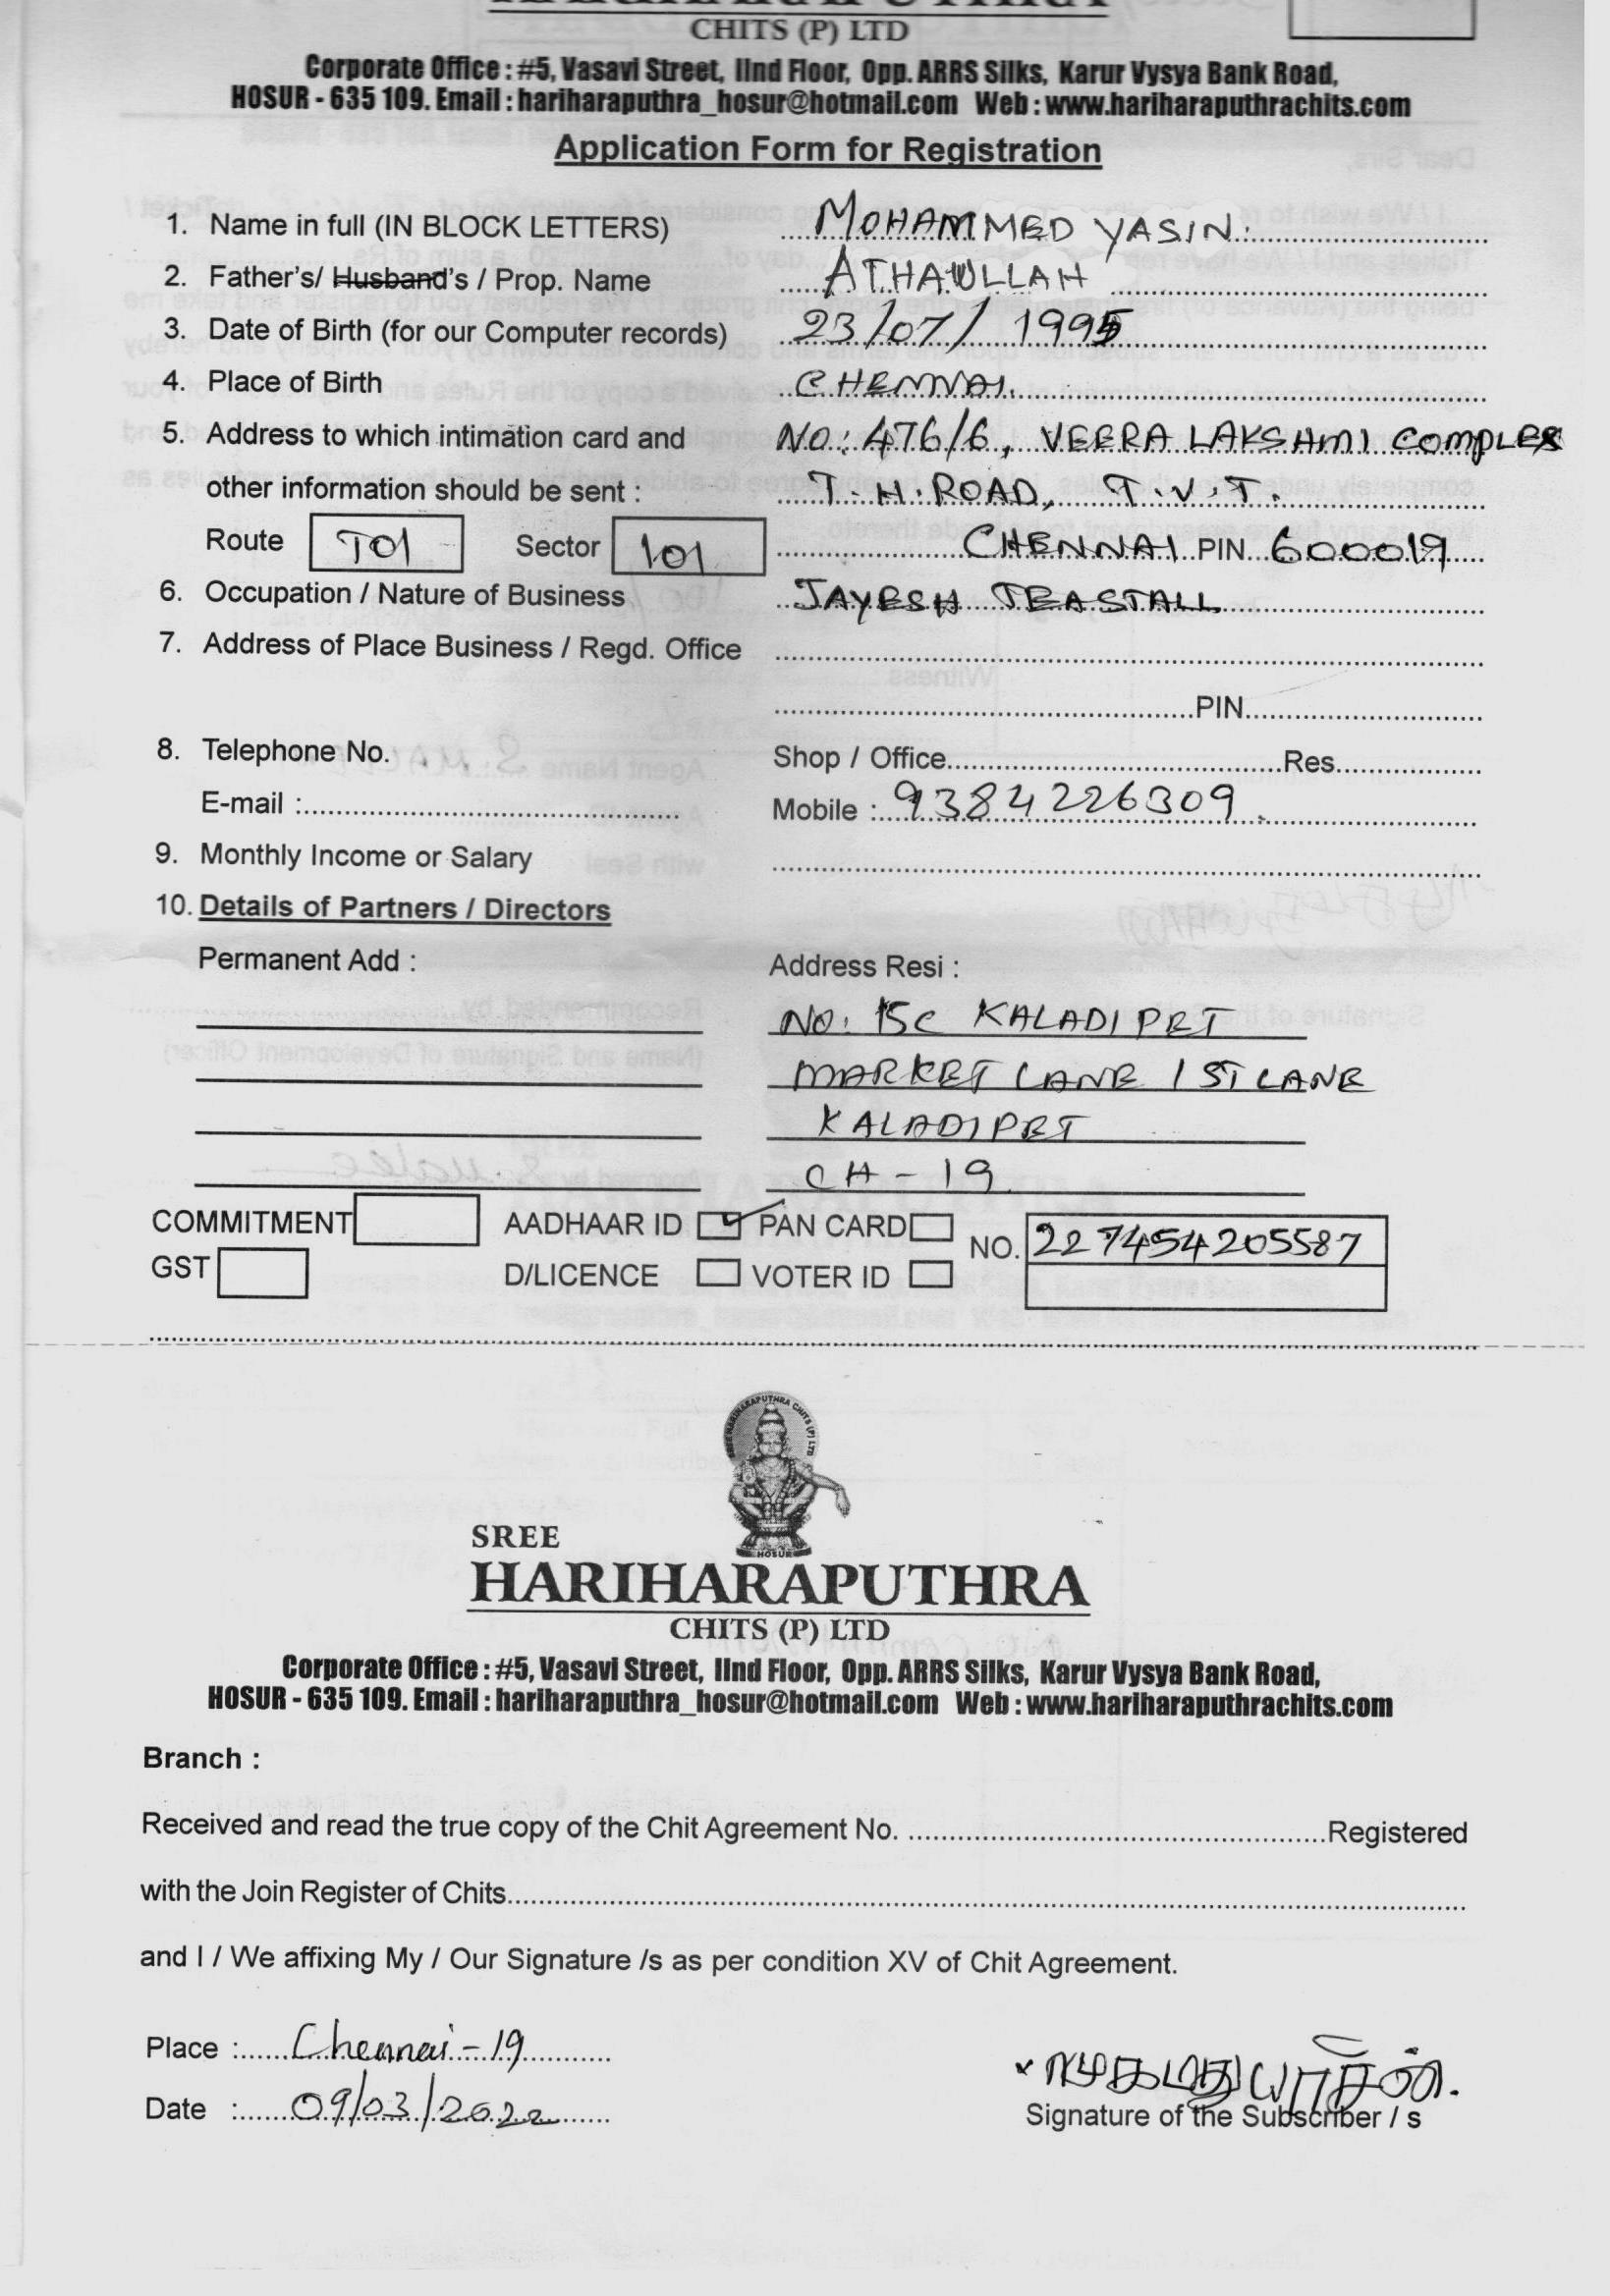 CHITS (P) LTD
Corporate Office : #5, Vasavi Street, IInd Floor, Opp. ARRS Silks, Karur Vysya Bank Road,
HOSUR - 635 109. Email : hariharaputhra_hosur@hotmail.com Web : www.hariharaputhrachits.com
Application Form for Registration
1. Name in full (IN BLOCK LETTERS) MOHAMMED YASIN.
2. Father's/ Husband's / Prop. Name ATHAULLAH
3. Date of Birth (for our Computer records) 23/07/1995
4. Place of Birth CHENNAI.
5. Address to which intimation card and No: 476/6, VEERA LAKSHMI COMPLEX
other information should be sent : T.H. ROAD, T.V.T.
Route T01 Sector 101 CHENNAI PIN 600019
6. Occupation / Nature of Business JAYESH TEASTALL
7. Address of Place Business / Regd. Office
PIN
8. Telephone No. Shop / Office Res
E-mail : Mobile : 9384226309.
9. Monthly Income or Salary
10. Details of Partners / Directors
Permanent Add : Address Resi :
NO: 15C KALADIPET
MARKET LANE 1ST LANE
KALADIPET
CH - 19
COMMITMENT AADHAAR ID ✓ PAN CARD NO. 227454205587
GST D/LICENCE VOTER ID
SREE HARIHARAPUTHRA CHITS (P) LTD
HOSUR
SREE
HARIHARAPUTHRA
CHITS (P) LTD
Corporate Office : #5, Vasavi Street, IInd Floor, Opp. ARRS Silks, Karur Vysya Bank Road,
HOSUR - 635 109. Email : hariharaputhra_hosur@hotmail.com Web : www.hariharaputhrachits.com
Branch :
Received and read the true copy of the Chit Agreement No. Registered
with the Join Register of Chits
and I / We affixing My / Our Signature /s as per condition XV of Chit Agreement.
Place : Chennai - 19
Date : 09/03/2022
முகமதுயாசின்.
Signature of the Subscriber / s